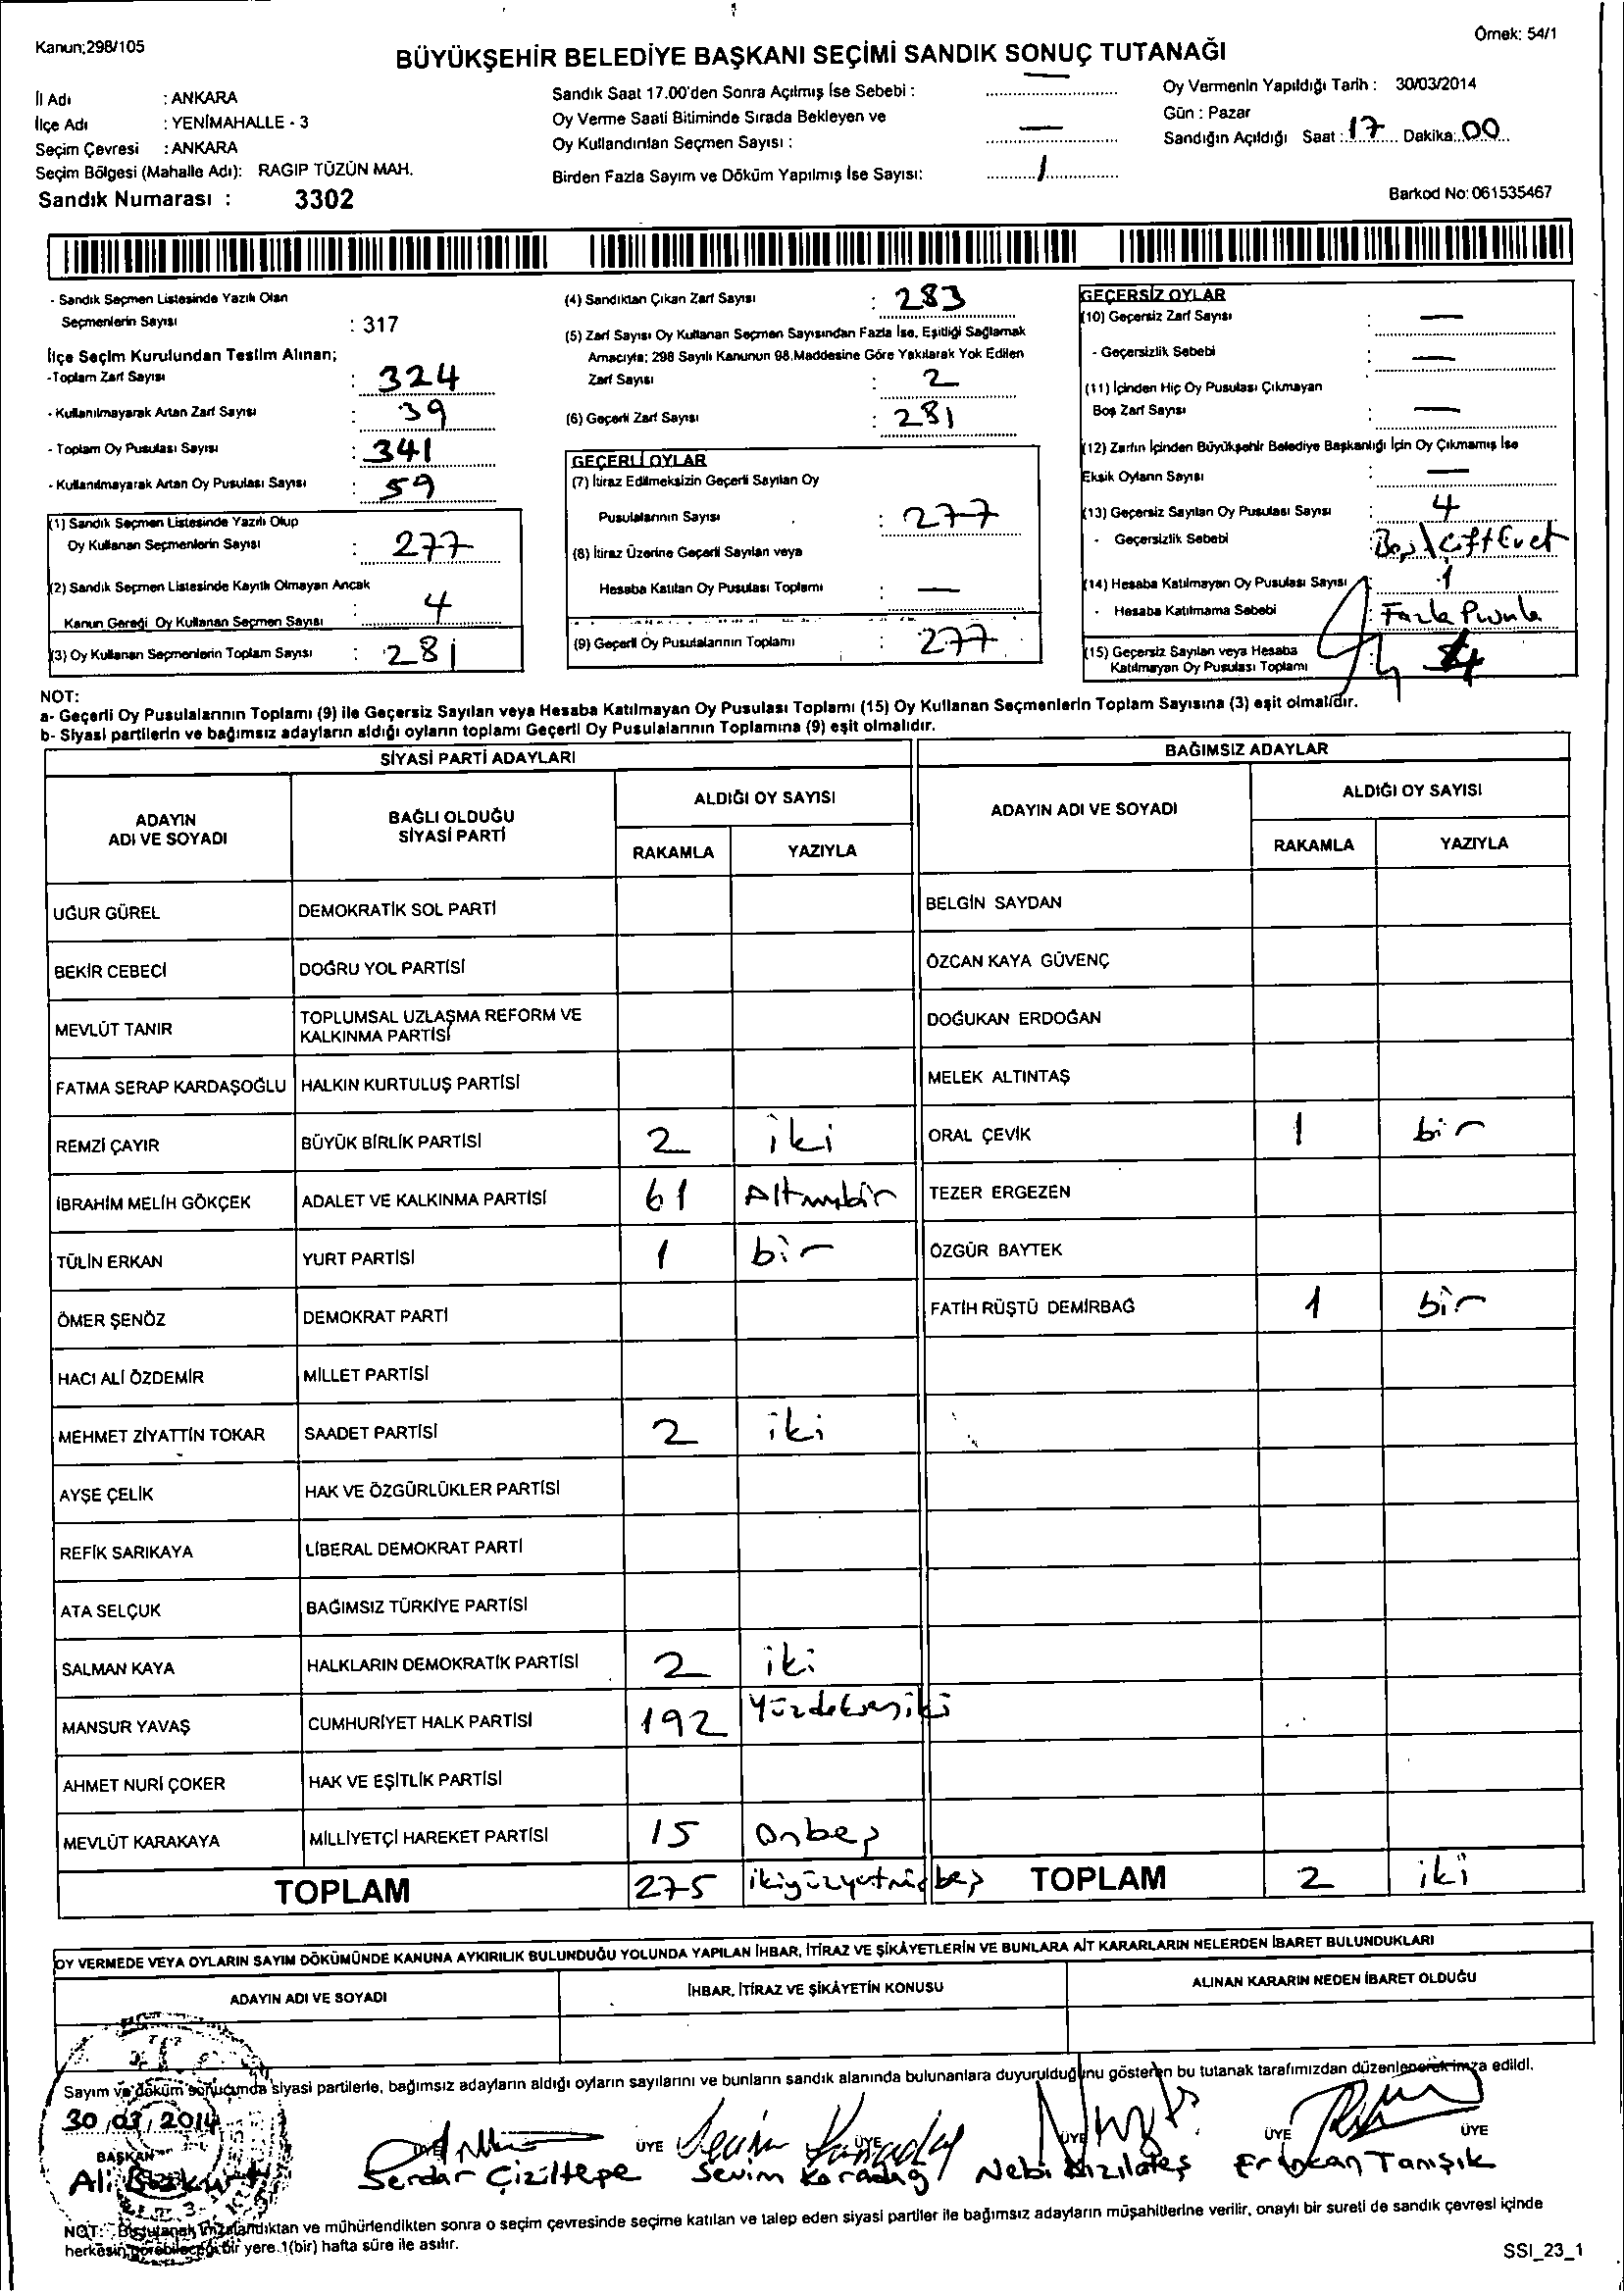 Kanun;298/105
Örnek: 54/1
BÜYÜKŞEHİR BELEDİYE BAŞKANI SEÇİMİ SANDIK SONUÇ TUTANAĞI
İl Adı : ANKARA
İlçe Adı : YENİMAHALLE - 3
Seçim Çevresi : ANKARA
Seçim Bölgesi (Mahalle Adı): RAGIP TÜZÜN MAH.
Sandık Numarası : 3302
Sandık Saat 17.00'den Sonra Açılmış İse Sebebi : —
Oy Verme Saati Bitiminde Sırada Bekleyen ve
Oy Kullandırılan Seçmen Sayısı : —
Birden Fazla Sayım ve Döküm Yapılmış İse Sayısı: 1
Oy Vermenin Yapıldığı Tarih : 30/03/2014
Gün : Pazar
Sandığın Açıldığı Saat : 17 Dakika: 00
Barkod No: 061535467
- Sandık Seçmen Listesinde Yazılı Olan
Seçmenlerin Sayısı : 317
İlçe Seçim Kurulundan Teslim Alınan;
-Toplam Zarf Sayısı : 324
- Kullanılmayarak Artan Zarf Sayısı : 39
- Toplam Oy Pusulası Sayısı : 341
- Kullanılmayarak Artan Oy Pusulası Sayısı : 59
(1) Sandık Seçmen Listesinde Yazılı Olup
Oy Kullanan Seçmenlerin Sayısı : 277
(2) Sandık Seçmen Listesinde Kayıtlı Olmayan Ancak
Kanun Gereği Oy Kullanan Seçmen Sayısı : 4
(3) Oy Kullanan Seçmenlerin Toplam Sayısı : 281
(4) Sandıktan Çıkan Zarf Sayısı : 283
(5) Zarf Sayısı Oy Kullanan Seçmen Sayısından Fazla İse, Eşitliği Sağlamak
Amacıyla; 298 Sayılı Kanunun 98.Maddesine Göre Yakılarak Yok Edilen
Zarf Sayısı : 2
(6) Geçerli Zarf Sayısı : 281
GEÇERLİ OYLAR
(7) İtiraz Edilmeksizin Geçerli Sayılan Oy
Pusulalarının Sayısı : 277
(8) İtiraz Üzerine Geçerli Sayılan veya
Hesaba Katılan Oy Pusulası Toplamı : —
(9) Geçerli Oy Pusulalarının Toplamı : 277
GEÇERSİZ OYLAR
(10) Geçersiz Zarf Sayısı : —
- Geçersizlik Sebebi : —
(11) İçinden Hiç Oy Pusulası Çıkmayan
Boş Zarf Sayısı : —
(12) Zarfın İçinden Büyükşehir Belediye Başkanlığı İçin Oy Çıkmamış İse
Eksik Oyların Sayısı : —
(13) Geçersiz Sayılan Oy Pusulası Sayısı : 4
- Geçersizlik Sebebi : Boş\Çift Evet
(14) Hesaba Katılmayan Oy Pusulası Sayısı : 1
- Hesaba Katılmama Sebebi : Fazla Pusula
(15) Geçersiz Sayılan veya Hesaba
Katılmayan Oy Pusulası Toplamı : 4
NOT:
a- Geçerli Oy Pusulalarının Toplamı (9) ile Geçersiz Sayılan veya Hesaba Katılmayan Oy Pusulası Toplamı (15) Oy Kullanan Seçmenlerin Toplam Sayısına (3) eşit olmalıdır.
b- Siyasi partilerin ve bağımsız adayların aldığı oyların toplamı Geçerli Oy Pusulalarının Toplamına (9) eşit olmalıdır.
SİYASİ PARTİ ADAYLARI
BAĞIMSIZ ADAYLAR
ADAYIN
ADI VE SOYADI
BAĞLI OLDUĞU
SİYASİ PARTİ
ALDIĞI OY SAYISI
RAKAMLA YAZIYLA
ADAYIN ADI VE SOYADI
ALDIĞI OY SAYISI
RAKAMLA YAZIYLA
UĞUR GÜREL DEMOKRATİK SOL PARTİ BELGİN SAYDAN
BEKİR CEBECİ DOĞRU YOL PARTİSİ ÖZCAN KAYA GÜVENÇ
MEVLÜT TANIR TOPLUMSAL UZLAŞMA REFORM VE
KALKINMA PARTİSİ DOĞUKAN ERDOĞAN
FATMA SERAP KARDAŞOĞLU HALKIN KURTULUŞ PARTİSİ MELEK ALTINTAŞ
REMZİ ÇAYIR BÜYÜK BİRLİK PARTİSİ 2 iki ORAL ÇEVİK 1 bir
İBRAHİM MELİH GÖKÇEK ADALET VE KALKINMA PARTİSİ 61 Altmışbir TEZER ERGEZEN
TÜLİN ERKAN YURT PARTİSİ 1 bir ÖZGÜR BAYTEK
ÖMER ŞENÖZ DEMOKRAT PARTİ FATİH RÜŞTÜ DEMİRBAĞ 1 bir
HACI ALİ ÖZDEMİR MİLLET PARTİSİ
MEHMET ZİYATTİN TOKAR SAADET PARTİSİ 2 iki
AYŞE ÇELİK HAK VE ÖZGÜRLÜKLER PARTİSİ
REFİK SARIKAYA LİBERAL DEMOKRAT PARTİ
ATA SELÇUK BAĞIMSIZ TÜRKİYE PARTİSİ
SALMAN KAYA HALKLARIN DEMOKRATİK PARTİSİ 2 iki
MANSUR YAVAŞ CUMHURİYET HALK PARTİSİ 192 Yüzdoksaniki
AHMET NURİ ÇOKER HAK VE EŞİTLİK PARTİSİ
MEVLÜT KARAKAYA MİLLİYETÇİ HAREKET PARTİSİ 15 Onbeş
TOPLAM 275 ikiyüzyetmişbeş TOPLAM 2 iki
OY VERMEDE VEYA OYLARIN SAYIM DÖKÜMÜNDE KANUNA AYKIRILIK BULUNDUĞU YOLUNDA YAPILAN İHBAR, İTİRAZ VE ŞİKÂYETLERİN VE BUNLARA AİT KARARLARIN NELERDEN İBARET BULUNDUKLARI
ADAYIN ADI VE SOYADI İHBAR, İTİRAZ VE ŞİKÂYETİN KONUSU ALINAN KARARIN NEDEN İBARET OLDUĞU
Sayım ve döküm sonucunda siyasi partilerle, bağımsız adayların aldığı oyların sayılarını ve bunların sandık alanında bulunanlara duyurulduğunu gösteren bu tutanak tarafımızdan düzenlenerek imza edildi.
30/03/2014
BAŞKAN ÜYE ÜYE ÜYE ÜYE ÜYE
Ali Bozkurt Serdar Çiziltepe Sevim Karadağ Nebi Kızılateş Ertokan Tanışık
NOT: Bu tutanak imzalandıktan ve mühürlendikten sonra o seçim çevresinde seçime katılan ve talep eden siyasi partiler ile bağımsız adayların müşahitlerine verilir, onaylı bir sureti de sandık çevresi içinde
herkesin görebileceği bir yere 1(bir) hafta süre ile asılır.
SSI_23_1